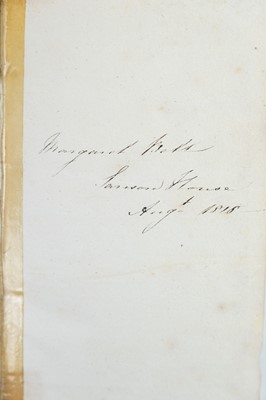 Margaret Holt
Sanson House
Augt 1818